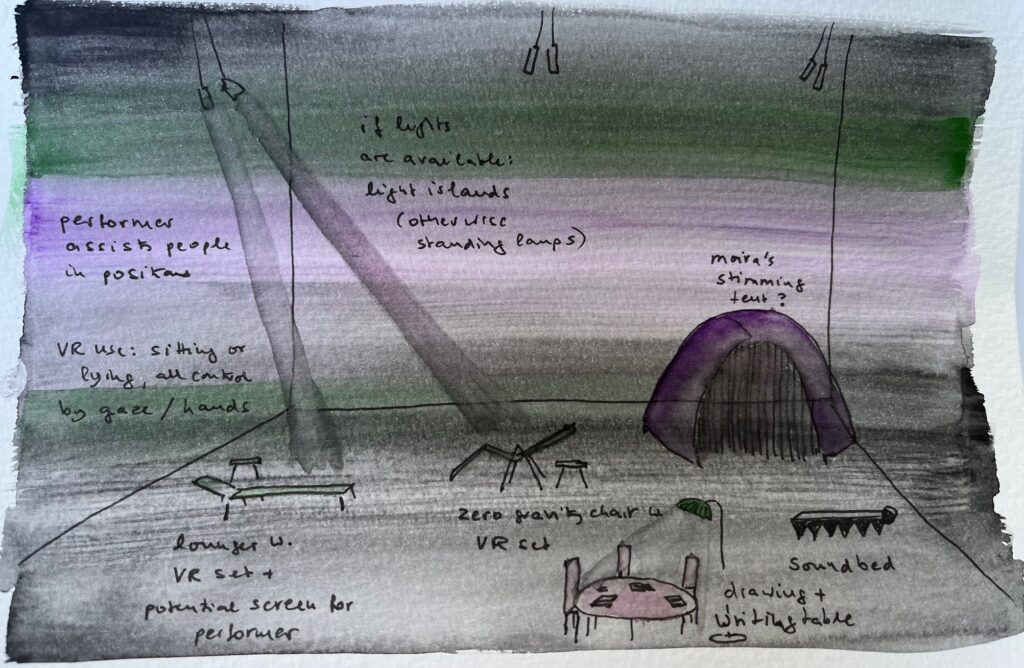 if lights
are available:
light islands
(otherwise
standing lamps)
performer
assists people
in positions
maira's
stimming
tent?
VR use: sitting or
lying, all control
by gaze / hands
zero gravity chair w.
VR set
lounger w.
VR set +
potential screen for
performer
soundbed
drawing +
writing table